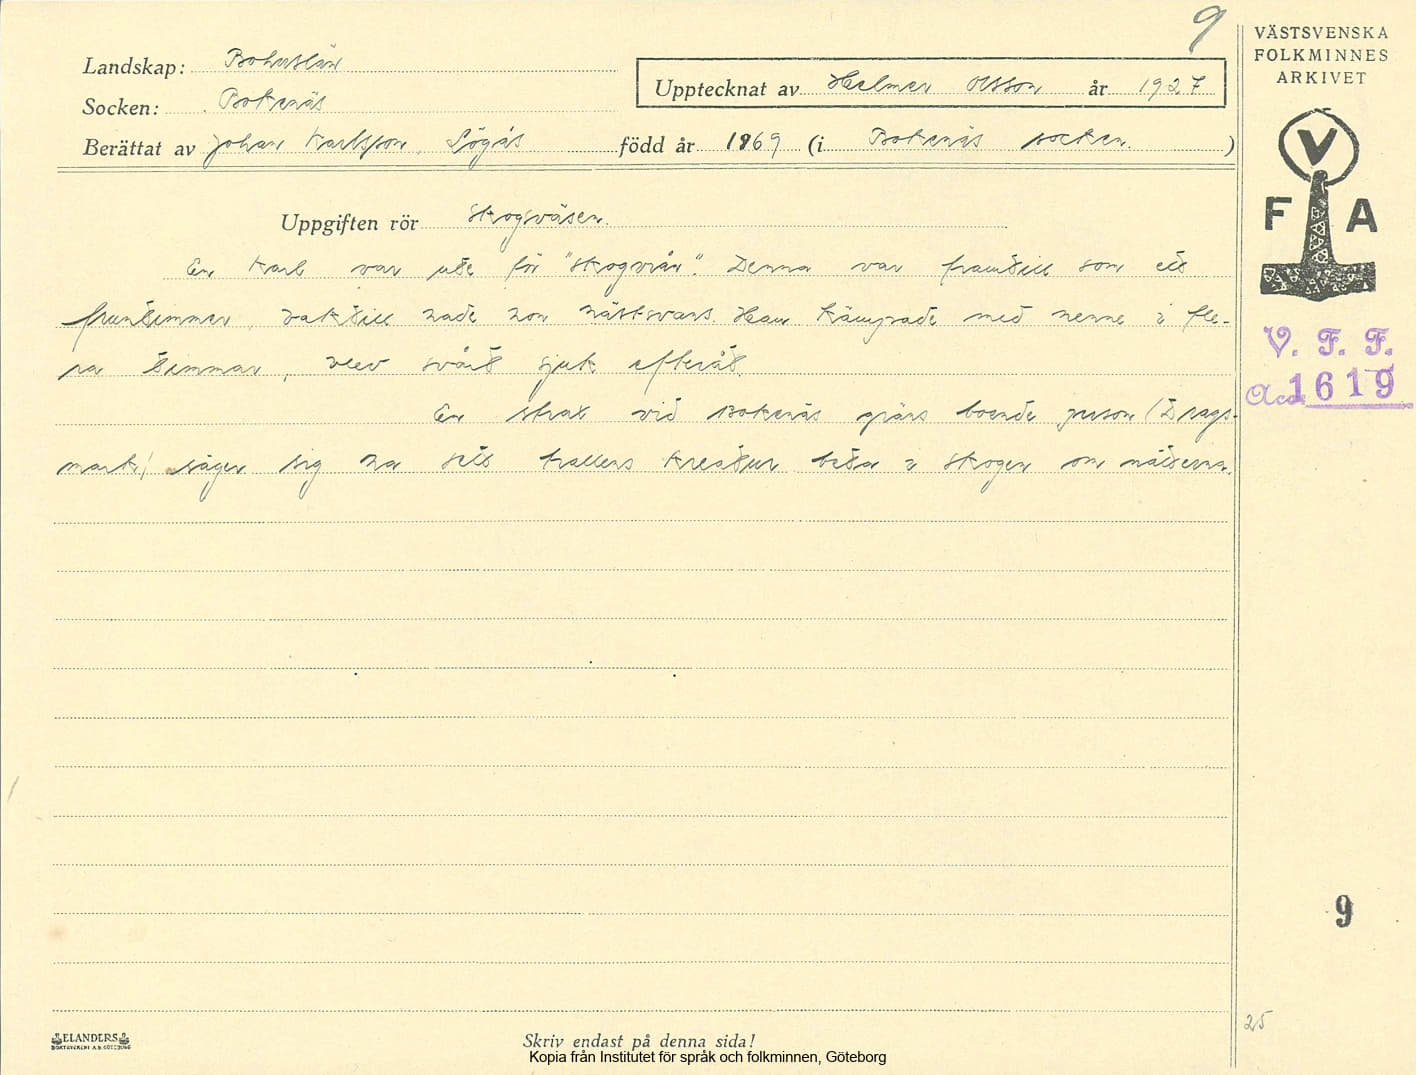 9
VÄSTSVENSKA
FOLKMINNES
ARKIVET
Landskap: Bohuslän
Socken: Bokenäs
Upptecknat av Helmer Olsson år 1927
Berättat av Johan Karlsson, Sögås född år 1869 (i Bokenäs socken.)
V
F A
Uppgiften rör Skogsväsen.
En karl var ute för "skogsrån". Denna var framtill som ett
fruntimmer, baktill hade hon hästsvans. Han kämpade med henne i fle-
ra timmar, blev svårt sjuk efteråt.
En strax vid Bokenäs gräns boende person (Drags-
mark) säger sig ha sett trollens kreatur beta i skogen om nätterna.
V. F. F.
Acc. 1619
9
25
ELANDERS
BOKTRYCKERI A.B. GÖTEBORG
Skriv endast på denna sida!
Kopia från Institutet för språk och folkminnen, Göteborg